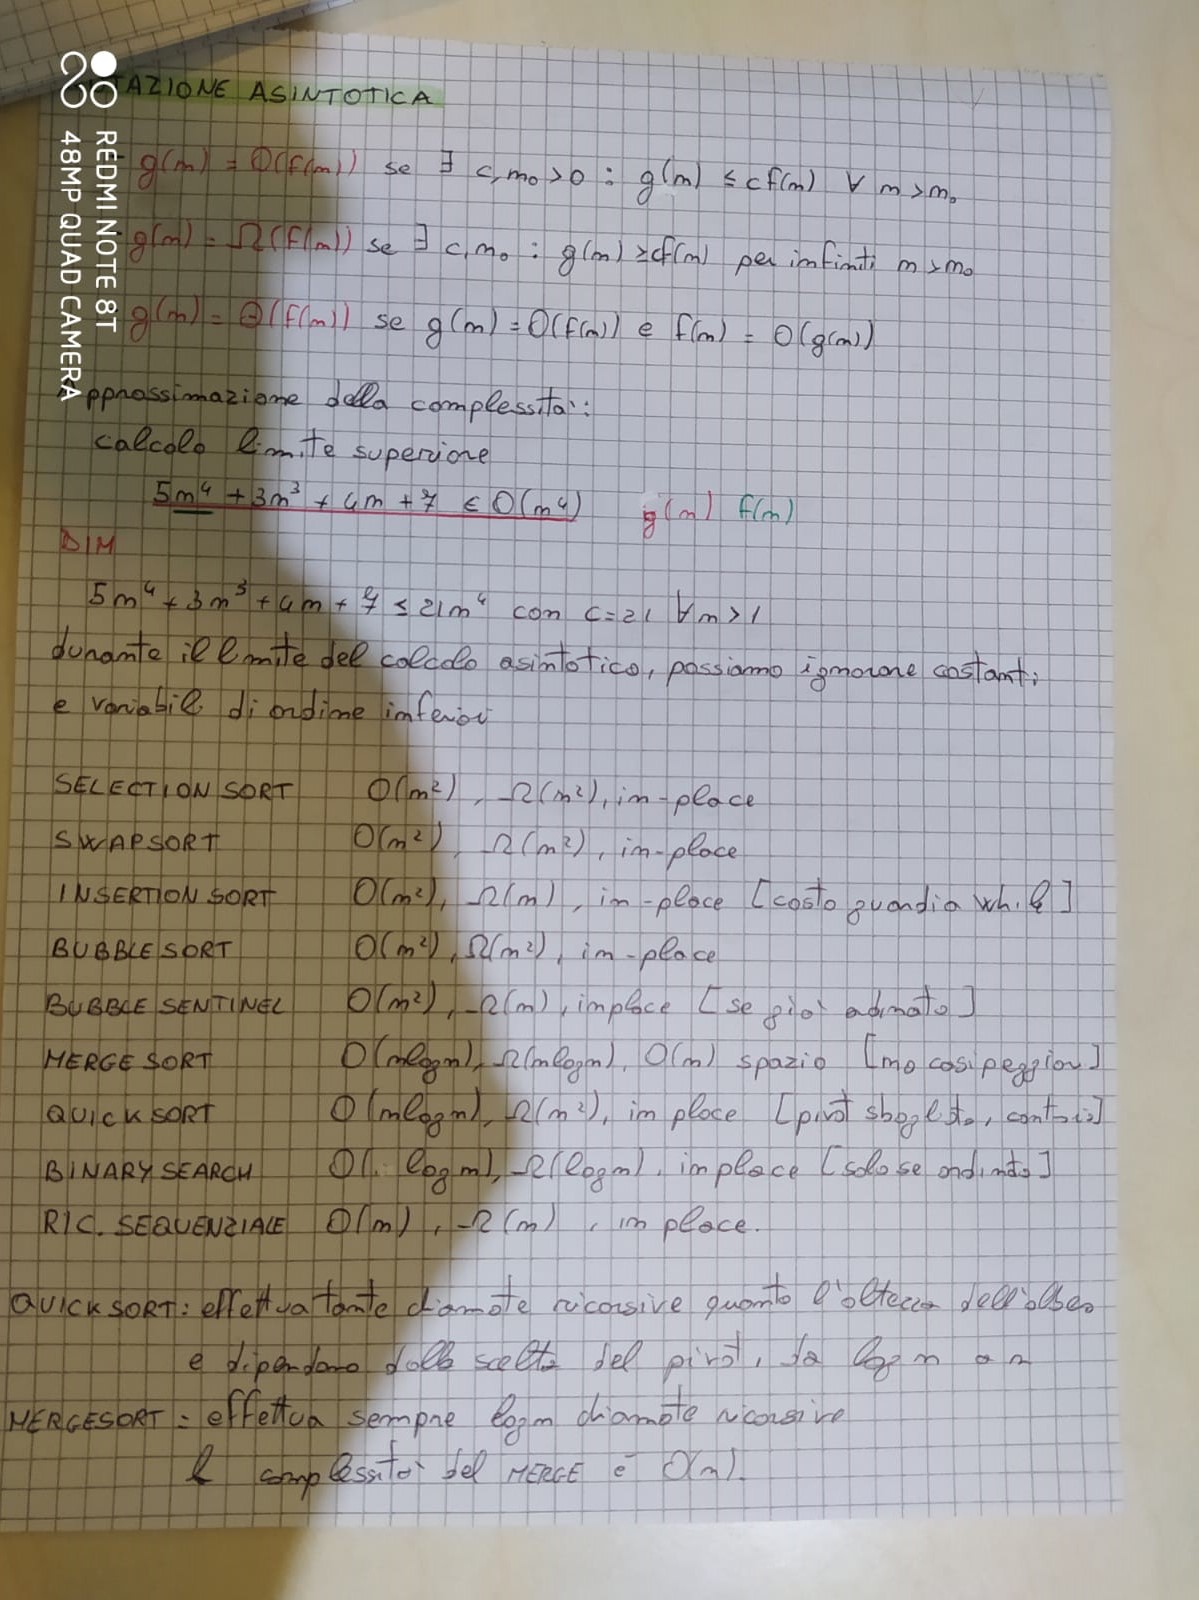 NOTAZIONE ASINTOTICA
g(n) = O(f(n)) se ∃ c,n₀>0 : g(n) ≤ cf(n) ∀ n>n₀
g(n) = Ω(f(n)) se ∃ c,n₀ : g(n) ≥ cf(n) per infiniti n>n₀
g(n) = Θ(f(n)) se g(n) = O(f(n)) e f(n) = O(g(n))
Approssimazione della complessità:
calcolo limite superiore
5n⁴ + 3n³ + 4n + 7 ∈ O(n⁴) g(n) f(n)
DIM
5n⁴ + 3n³ + 4n + 7 ≤ 21n⁴ con c=21 ∀n>1
durante il limite del calcolo asintotico, possiamo ignorare costanti
e variabili di ordine inferiori
SELECTION SORT O(n²), Ω(n²), in-place
SWAPSORT O(n²), Ω(n²), in-place
INSERTION SORT O(n²), Ω(n), in-place [costo guardia while]
BUBBLE SORT O(n²), Ω(n²), in-place
BUBBLE SENTINEL O(n²), Ω(n), inplace [se già ordinato]
MERGE SORT O(nlogn), Ω(nlogn), O(n) spazio [no casi peggiori]
QUICK SORT O(nlogn), Ω(n²), in place [pivot sbagliato,
BINARY SEARCH O(logn), Ω(logn), in place [solo se ordinato]
RIC. SEQUENZIALE O(n), Ω(n), in place.
QUICK SORT: effettua tante chiamate ricorsive quanto l'altezza dell'albero
e dipendono dalla scelta del pivot, da logn a n
MERGESORT: effettua sempre logn chiamate ricorsive
la complessità del MERGE è O(n).
REDMI NOTE 8T
48MP QUAD CAMERA